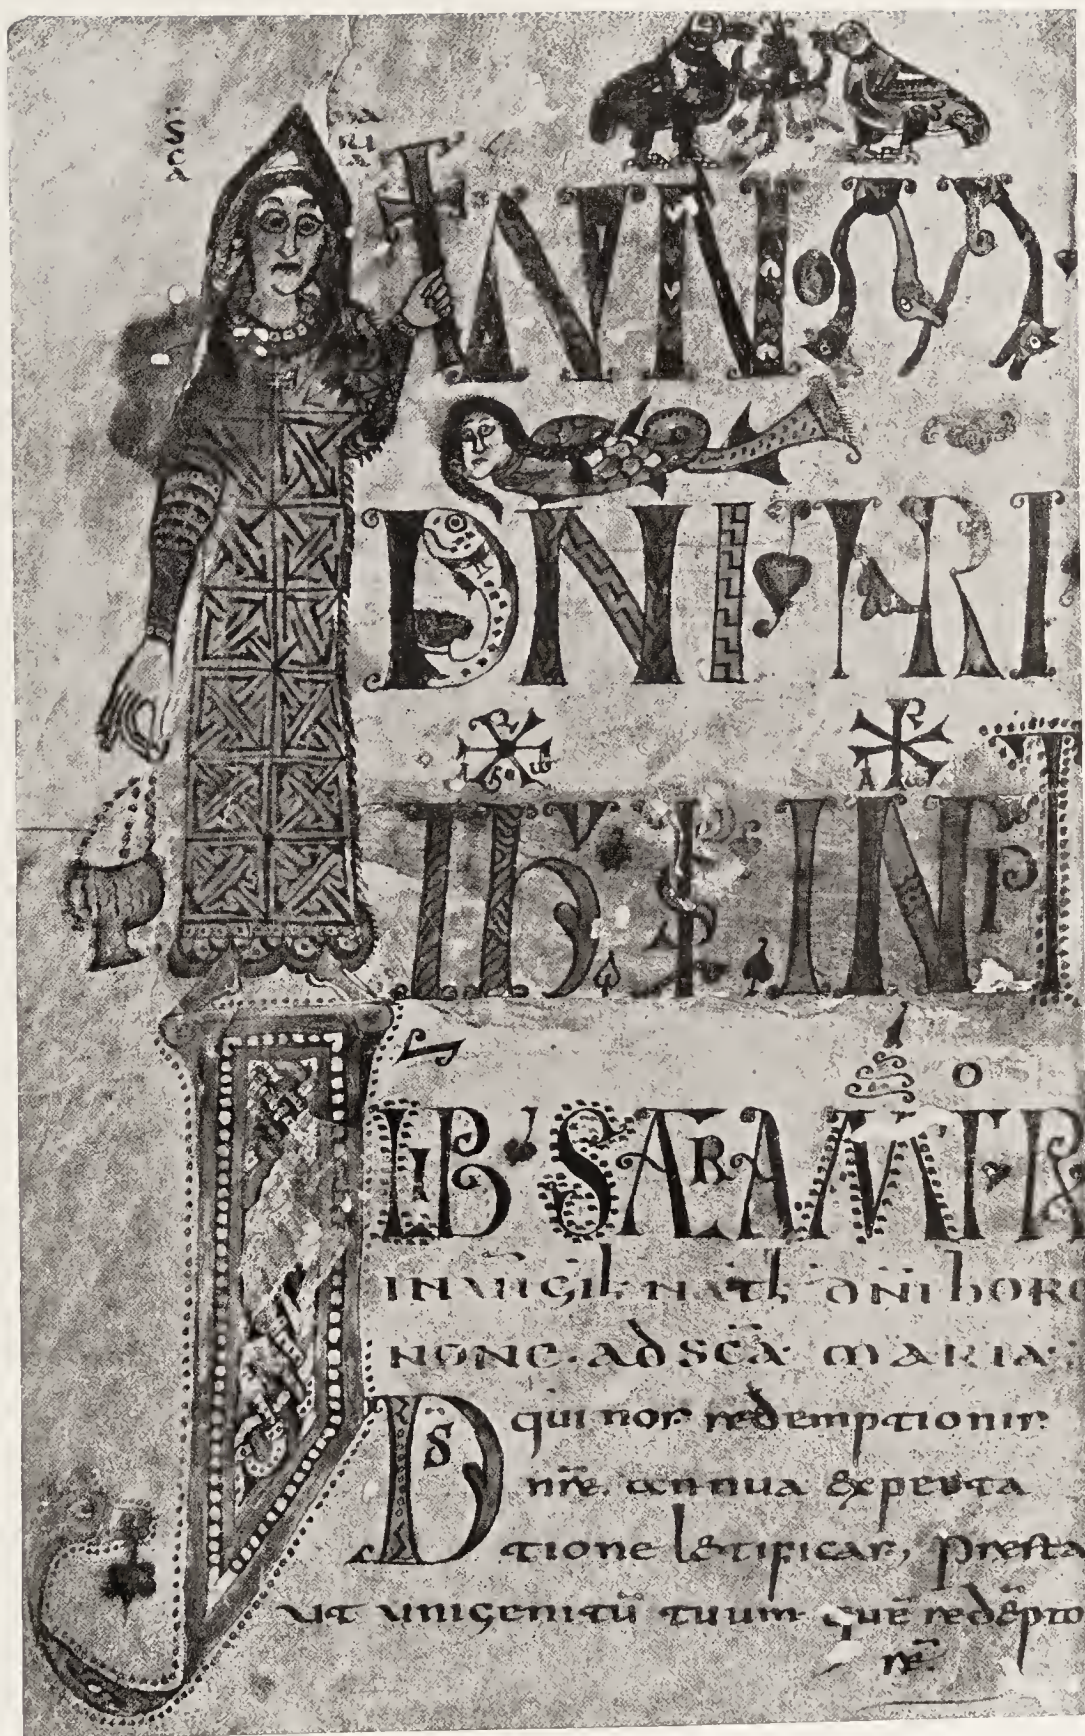 SCA MARIA
IN NOM
DNI NRI
IHU XPI INCPT
LIB SACRAMTOR
IN UIGIL NATL DNI HOR
NONE AD SCA MARIA
DS qui nos redemptionis
nre annua expecta
tione letificas, presta
ut unigenitu tuum que redepto
re